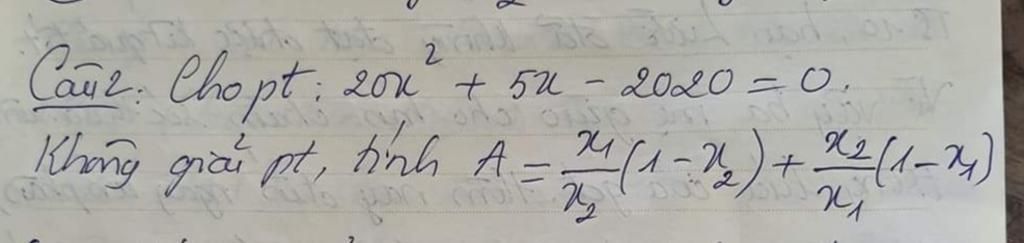 Câu 2: Cho pt: 20x² + 5x - 2020 = 0.
Không giải pt, tính A = x₁/x₂ (1 - x₂) + x₂/x₁ (1 - x₁)